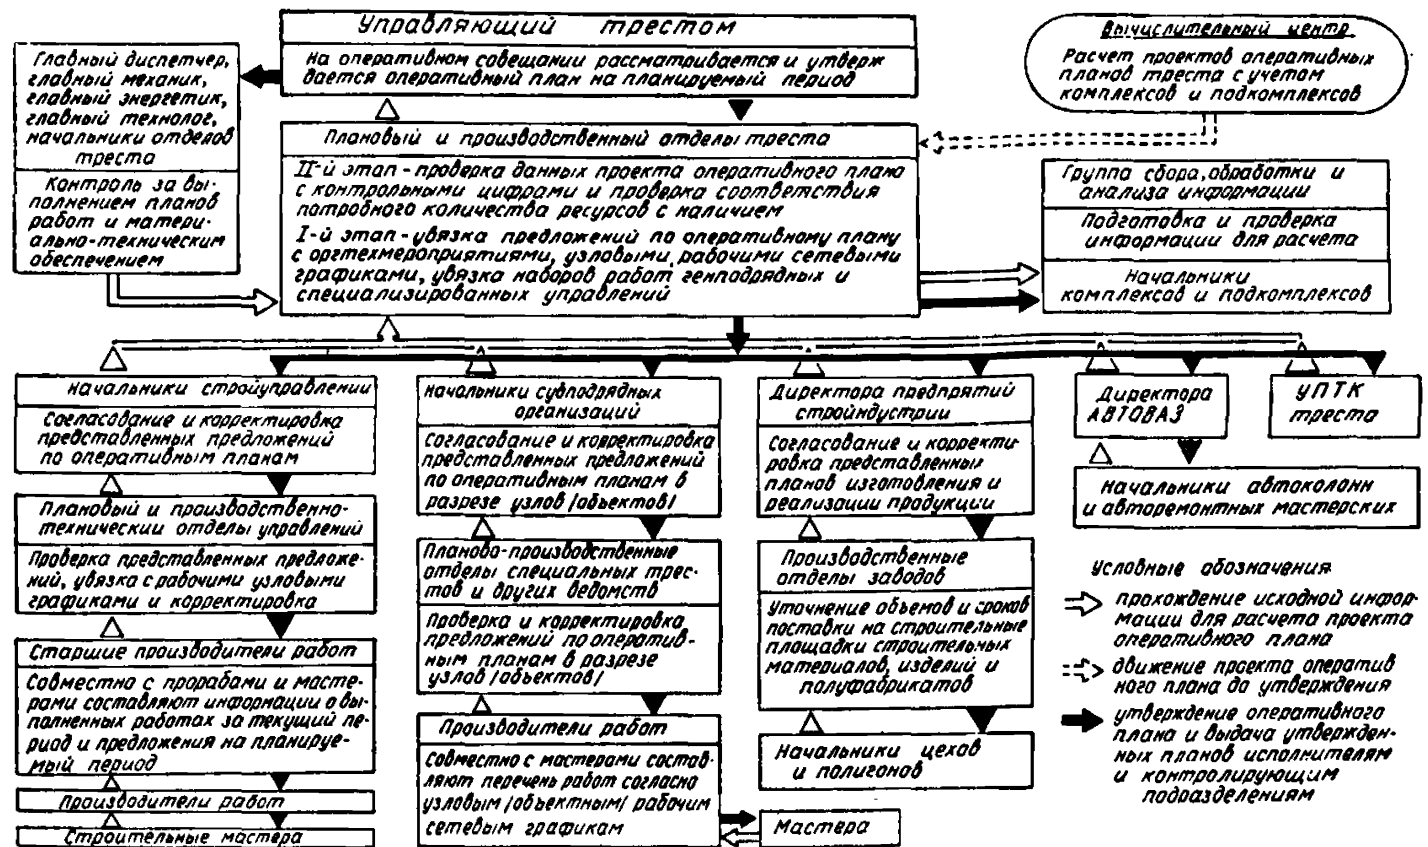 Управляющий трестом
На оперативном совещании рассматривается и утверж
дается оперативный план на планируемый период
Главный диспетчер,
главный механик,
главный энергетик,
главный технолог,
начальники отделов
треста
Контроль за вы-
полнением планов
работ и матери-
ально-техническим
обеспечением
Вычислительный центр
Расчет проектов оперативных
планов треста с учетом
комплексов и подкомплексов
Плановый и производственный отделы треста
II-й этап - проверка данных проекта оперативного плана
с контрольными цифрами и проверка соответствия
потробного количества ресурсов с наличием
I-й этап - увязка предложений по оперативному плану
с оргтехмероприятиями, узловыми рабочими сетевыми
графиками, увязка наборов работ генподрядных и
специализированных управлений
Группа сбора, обработки и
анализа информации
Подготовка и проверка
информации для расчета
Начальники
комплексов и подкомплексов
Начальники стройуправлении
Согласование и корректировка
представленных предложений
по оперативным планам
Плановый и производственно-
техническии отделы управлений
Проверка представленных предложе-
ний, увязка с рабочими узловыми
графиками и корректировка
Старшие производители работ
Совместно с прорабами и масте-
рами составляют информации о вы-
полненных работах за текущий пе-
риод и предложения на планируе-
мый период
Производители работ
Строительные мастера
Начальники субподрядных
организаций
Согласование и корректировка
представленных предложений
по оперативным планам в
разрезе узлов /объектов/
Планово-производственные
отделы специальных трес-
тов и других ведомств
Проверка и корректировка
предложений по оператив-
ным планам в разрезе
узлов /объектов/
Производители работ
Совместно с мастерами состав-
ляют перечень работ согласно
узловым /объектным/ рабочим
сетевым графикам
Мастера
Директора предпрятий
стройндустрии
Согласование и корректи-
ровка представленных
планов изготовления и
реализации продукции
Производственные
отделы заводов
Уточнение объемов и сроков
поставки на строительные
площадки строительных
материалов, изделий и
полуфабрикатов
Начальники цехов
и полигонов
Директора
АВТОВАЗ
УПТК
треста
Начальники автоколонн
и авторемонтных мастерских
Условные обозначения
прохождение исходной инфор-
мации для расчета проекта
оперативного плана
движение проекта оператив
ного плана до утверждения
утверждение оперативного
плана и выдача утвержден-
ных планов исполнителям
и контролирующим
подразделениям